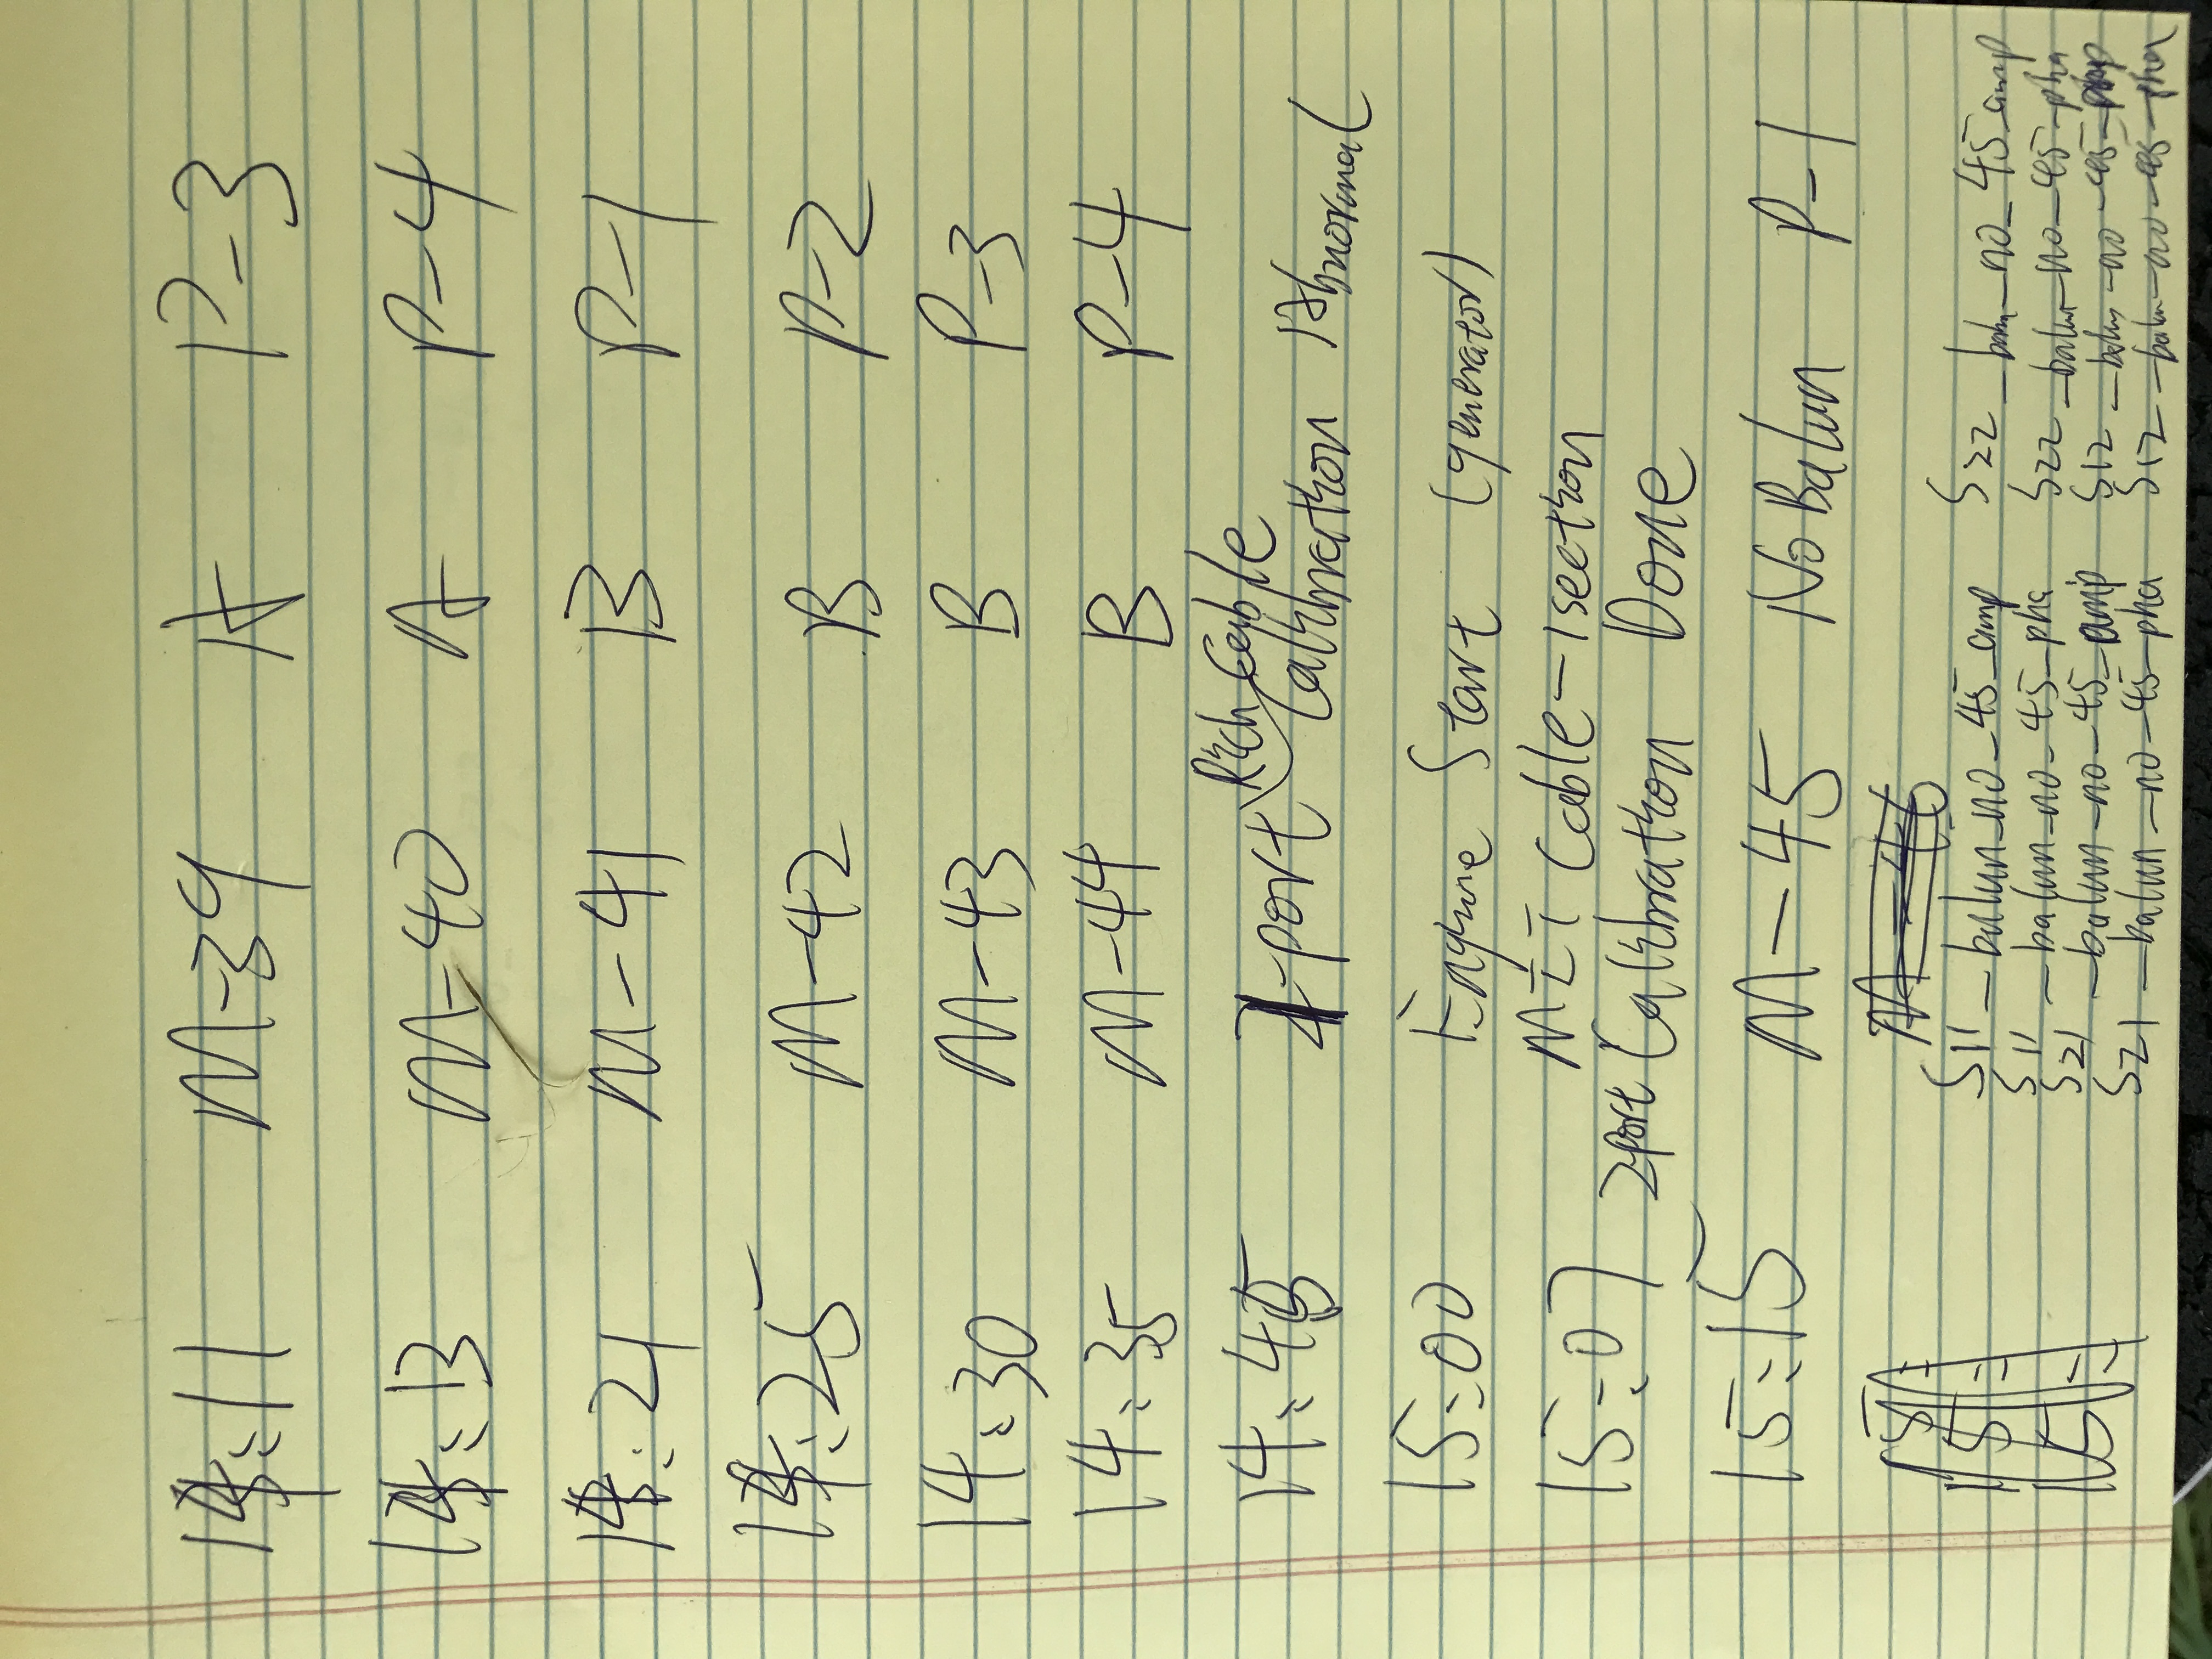 14:11 M-39 A P-3
14:13 M-40 A P-4
14:24 M-41 B P-1
14:25 M-42 B P-2
14:30 M-43 B P-3
14:35 M-44 B P-4
Rich Cable
14:45 1-port Calibration Abnormal
15:00 Engine Start (generator)
Cable-1section
15:07 2port Calibration Done
15:15 M-45 No Balun P-1
S11-balun-no-45-amp S22-balun-no-45-amp
S11-balun-no-45-pha S22-balun-no-45-pha
S21-balun-no-45-amp S12-balun-no-45-amp
S21-balun-no-45-pha S12-balun-no-45-pha